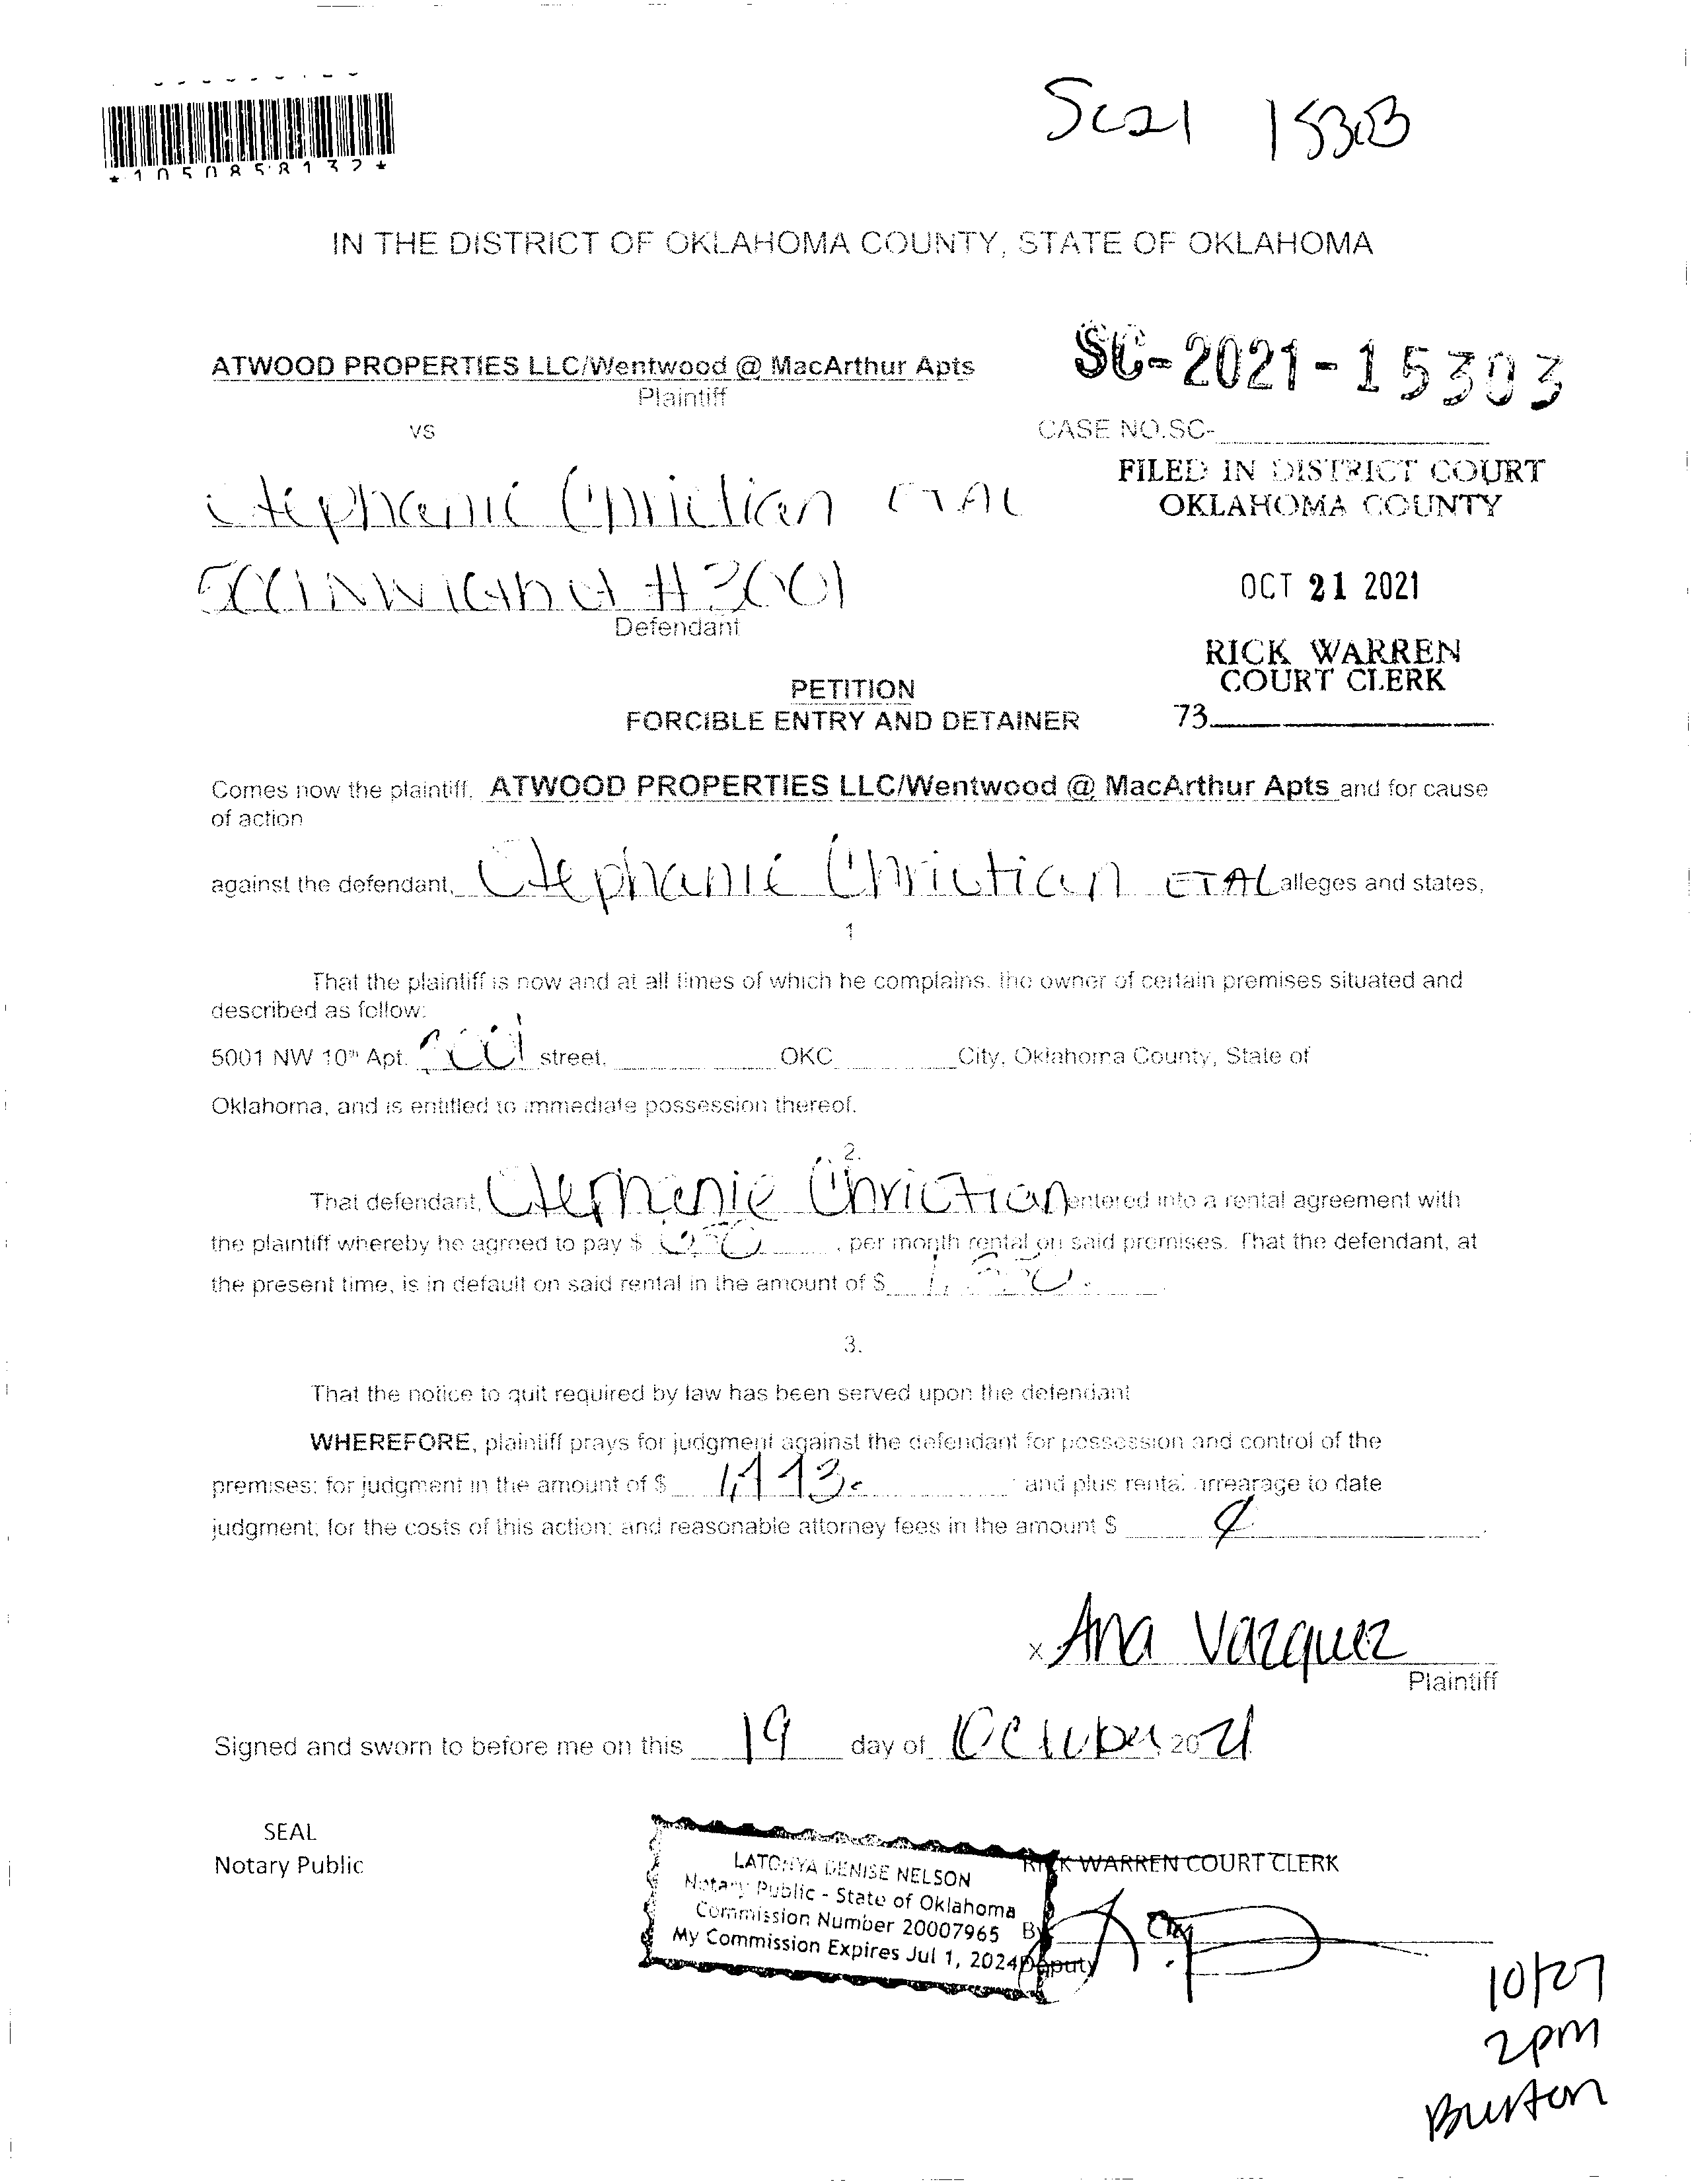 *1050858132*
SC21 15303
IN THE DISTRICT OF OKLAHOMA COUNTY, STATE OF OKLAHOMA
ATWOOD PROPERTIES LLC/Wentwood @ MacArthur Apts
Plaintiff
SC-2021-15303
vs
CASE NO.SC-
Stephanie Christian ETAL
FILED IN DISTRICT COURT
OKLAHOMA COUNTY
5001 NW 10th st #3001
Defendant
OCT 21 2021
RICK WARREN
COURT CLERK
73
PETITION
FORCIBLE ENTRY AND DETAINER
Comes now the plaintiff, ATWOOD PROPERTIES LLC/Wentwood @ MacArthur Apts and for cause
of action
against the defendant, Stephanie Christian ETAL alleges and states,
1
That the plaintiff is now and at all times of which he complains, the owner of certain premises situated and
described as follow:
5001 NW 10th Apt. 3001 street, OKC City, Oklahoma County, State of
Oklahoma, and is entitled to immediate possession thereof.
2.
That defendant, Stephanie Christian entered into a rental agreement with
the plaintiff whereby he agreed to pay $ per month rental on said premises. That the defendant, at
the present time, is in default on said rental in the amount of $
3.
That the notice to quit required by law has been served upon the defendant
WHEREFORE, plaintiff prays for judgment against the defendant for possession and control of the
premises; for judgment in the amount of $ and plus rental arrearage to date
judgment; for the costs of this action; and reasonable attorney fees in the amount $
x Ana Vazquez
Plaintiff
Signed and sworn to before me on this 19 day of October, 2021
SEAL
Notary Public
LATONYA DENISE NELSON
Notary Public - State of Oklahoma
Commission Number 20007965
My Commission Expires Jul 1, 2024
RICK WARREN COURT CLERK
By
Deputy
10/27
2pm
Burton